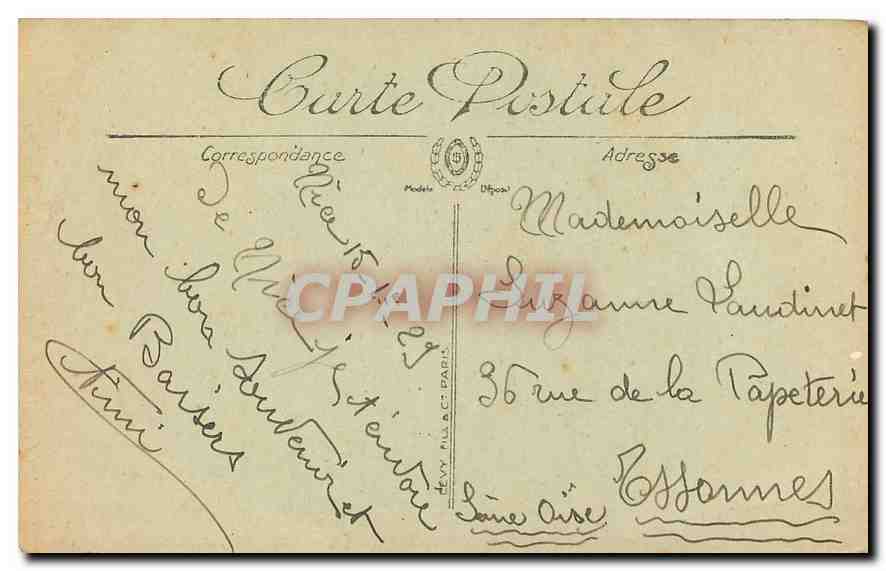 Carte Postale
Correspondance
Adresse
Modèle Déposé
Nice 15 23
De Nice je t'envoie
mon bon souvenir et
bon Baisers
Mademoiselle
Suzanne Laudinet
36 rue de la Papeterie
Essonnes
Seine Oise
LEVY FILS & Cie PARIS
CPAPHIL